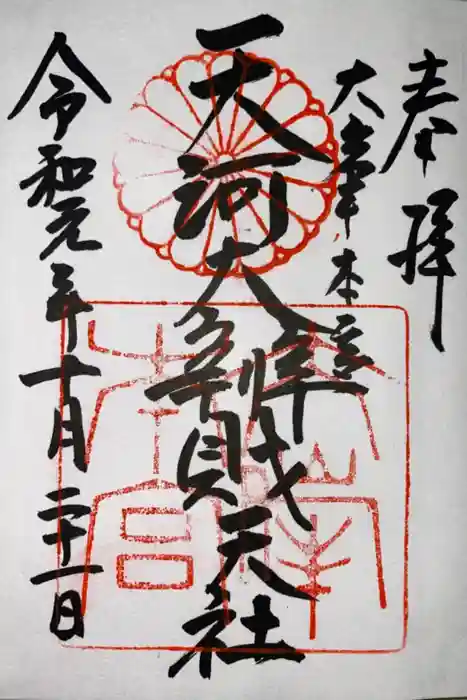 奉拝
大峯本宮
天河大辨財天社
令和元年十月二十一日